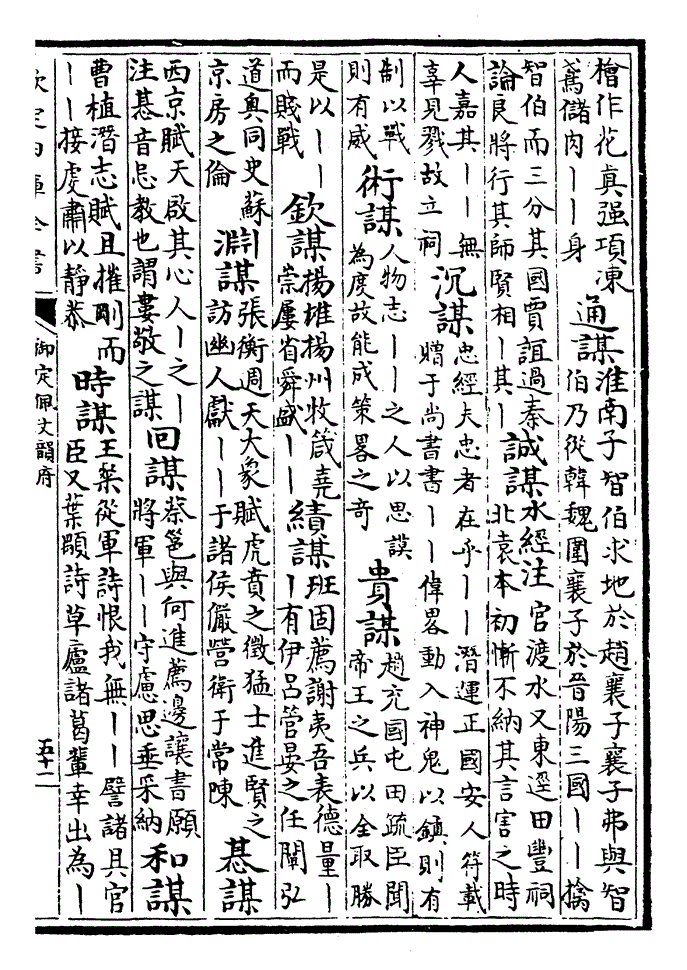 檜作花真强項凍
鴌儲肉丨丨身
通謀
淮南子智伯求地於趙襄子襄子弗與智
伯乃從韓魏圍襄子於晉陽三國丨丨擒
智伯而三分其國賈誼過秦
論良將行其師賢相丨其丨
誠謀
水經注官渡水又東逕田豐祠
北袁本初慚不納其言害之時
人嘉其丨丨無
辜見戮故立祠
沉謀
忠經夫忠者在乎丨丨潛運正國安人符載
贈于尚書書丨丨偉畧動入神鬼以鎮則有
制以戰
則有威
術謀
人物志丨丨之人以思謨
為度故能成策畧之奇
貴謀
趙充國屯田疏臣聞
帝王之兵以全取勝
是以丨丨
而賤戰
欽謀
揚雄揚州牧箴堯
崇屢省舜盛丨丨
績謀
班固薦謝夷吾表德量丨
丨有伊吕管晏之任闡弘
道奥同史蘇
京房之倫
淵謀
張衡週天大象賦虎賁之徵猛士進賢之
訪幽人獻丨丨于諸侯儼營衛于常陳
惎謀
西京賦天啟其心人丨之丨
注惎音忌教也謂婁敬之謀
回謀
蔡邕與何進薦邊讓書願
將軍丨丨守慮思垂采納
和謀
曹植潛志賦且摧剛而
丨丨接處肅以靜恭
時謀
王粲從軍詩恨我無丨丨譬諸具官
臣又葉顒詩草廬諸葛輩幸出為丨
欽定四庫全書
御定佩文韻府
五十二